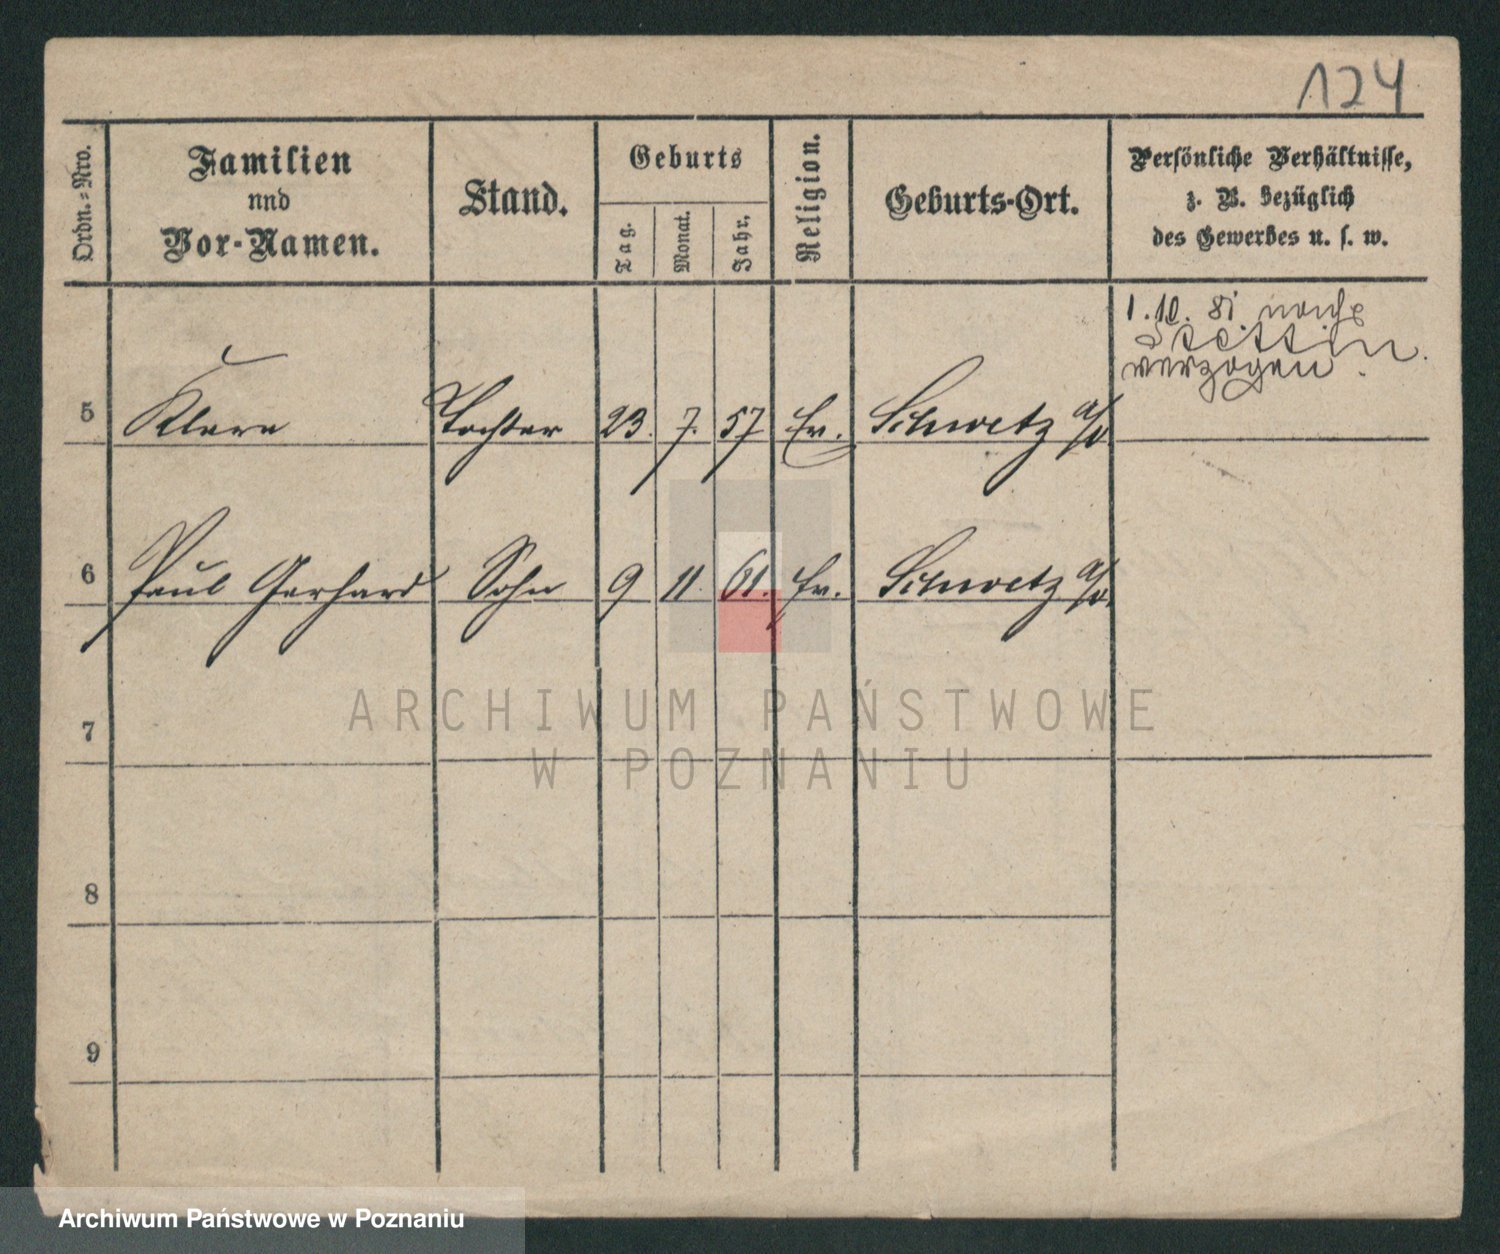 124
Ordn.-Nro.
Familien
und
Vor-Namen.
Stand.
Geburts
Tag.
Monat.
Jahr.
Religion.
Geburts-Ort.
Persönliche Verhältnisse,
z. B. bezüglich
des Gewerbes u. s. w.
1. 10. 81 nach
Stettin
verzogen.
5 Klara Tochter 23. 7. 57 Ev. Schwetz a/W.
6 Paul Gerhard Sohn 9 11. 61. Ev. Schwetz a/W.
7
8
9
ARCHIWUM PAŃSTWOWE
W POZNANIU
Archiwum Państwowe w Poznaniu